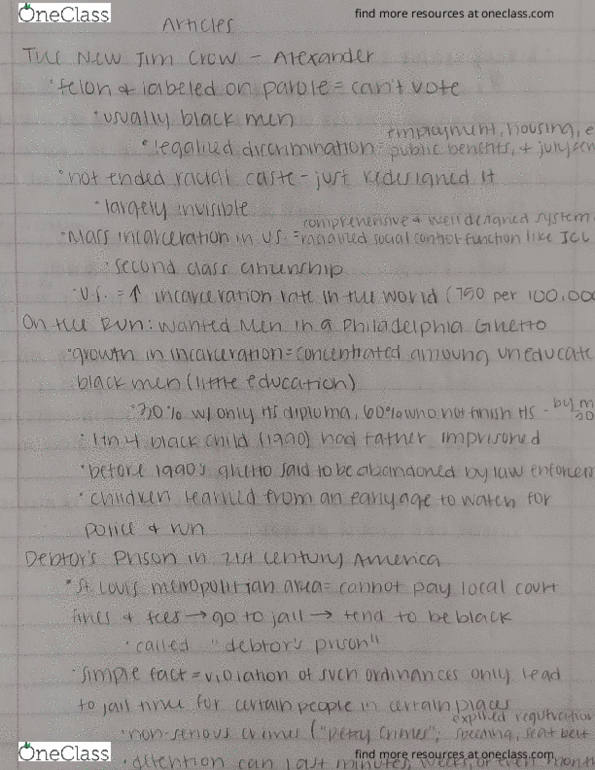 OneClass
find more resources at oneclass.com
Articles
The New Jim Crow - Alexander
·felon & labeled on parole = can't vote
·usually black men
employment, housing, e
·legalized discrimination = public benefits, + jury
·not ended racial caste - just redesigned it
·largely invisible
comprehensive & well designed system
·Mass incarceration in U.S. = racialized social control function like JCL
·second class citizenship
·U.S. = ↑ incarceration rate in the world (750 per 100,000
On the Run: Wanted Men in a Philadelphia Ghetto
·growth in incarceration = concentrated amoung uneducate
black men (little education)
·30% w/ only HS diploma, 60% who not finish HS - by m
30
·1 in 4 black child (1990) had father imprisoned
·before 1990s ghetto said to be abandoned by law enforcem
·children learned from an early age to watch for
police & run
Debtor's Prison in 21st century America
·St Louis metropolitian area = cannot pay local court
fines & fees → go to jail → tend to be black
·called "debtor's prison"
·simple fact = violation of such ordinances only lead
to jail time for certain people in certain places
expired registration
·non-serious crimes ("petty crimes"; speeding, seat belt
·detention can last minutes, weeks, or even month
OneClass
find more resources at oneclass.com